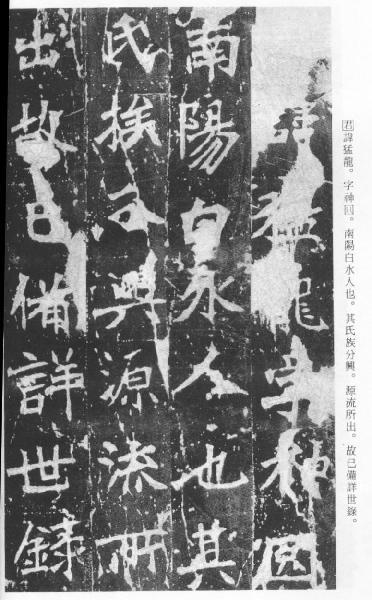 君諱猛龍。字神囧。南陽白水人也。其氏族分興。源流所出。故已備詳世錄。
諱猛龍字神囧
南陽白水人也其
氏族分興源流所
出故已備詳世錄